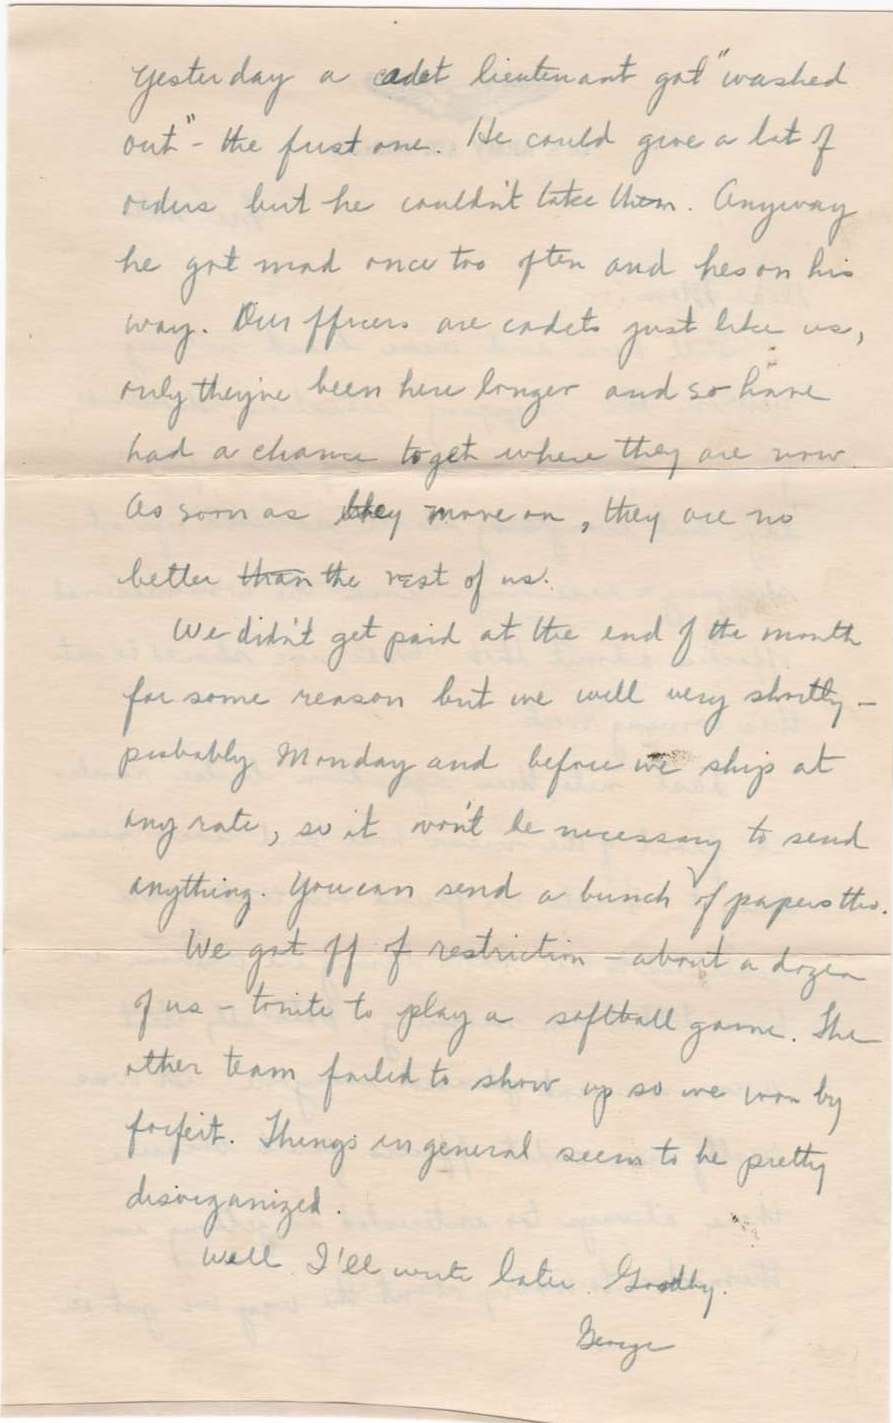 Yesterday a cadet lieutenant got "washed
out" - the first one. He could give a lot of
orders but he couldn't take them. Anyway
he got mad once too often and hes on his
way. Our officers are cadets just like us,
only they've been here longer and so have
had a chance to get where they are now.
As soon as they move on, they are no
better than the rest of us.
We didn't get paid at the end of the month
for some reason but we will very shortly -
probably Monday and before we ship at
any rate, so it won't be necessary to send
anything. You can send a bunch of papers tho.
We got off of restriction - about a dozen
of us - tonite to play a softball game. The
other team failed to show up so we won by
forfeit. Things in general seem to be pretty
disorganized.
Well I'll write later. Goodby.
George